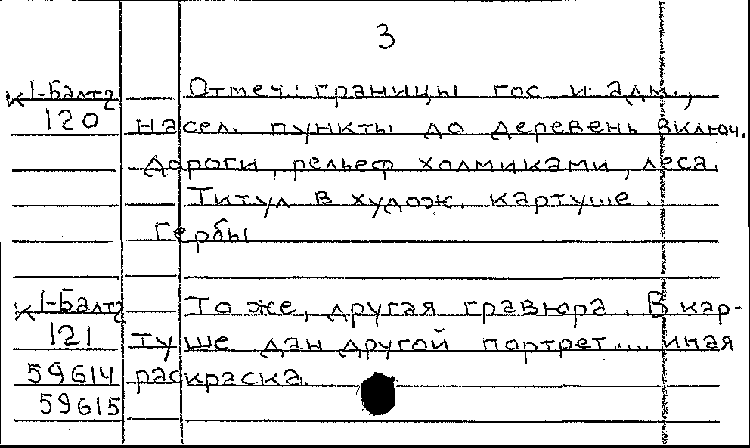 3
К 1-Балт 2 Отмеч.: границы гос и адм.,
120 насел. пункты до деревень включ.
дороги, рельеф холмиками, леса.
Титул в худож. картуше.
Гербы
К 1-Балт 2 То же, другая гравюра. В кар-
121 туше дан другой портрет... иная
59614 раскраска.
59615